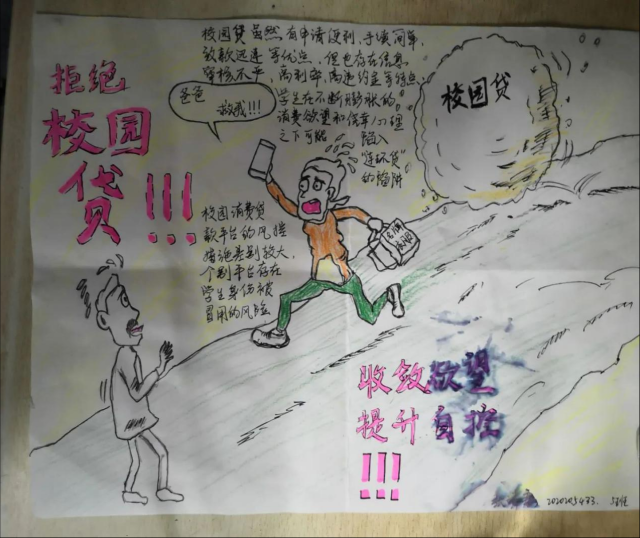 校园贷虽然有申请便利,手续简单,
放款迅速等优点,但也存在信息
审核不严,高利率,高违约金等特点
学生在不断膨胀的
消费欲望和侥幸心理
之下可能 陷入
"连环贷"
的陷阱
拒绝
校园
贷!!!
爸爸
救我!!!
校园贷
校园消费贷
款平台的风控
措施差别较大,
个别平台存在
学生身份被
冒用的风险
收敛欲望
提升自控
!!!